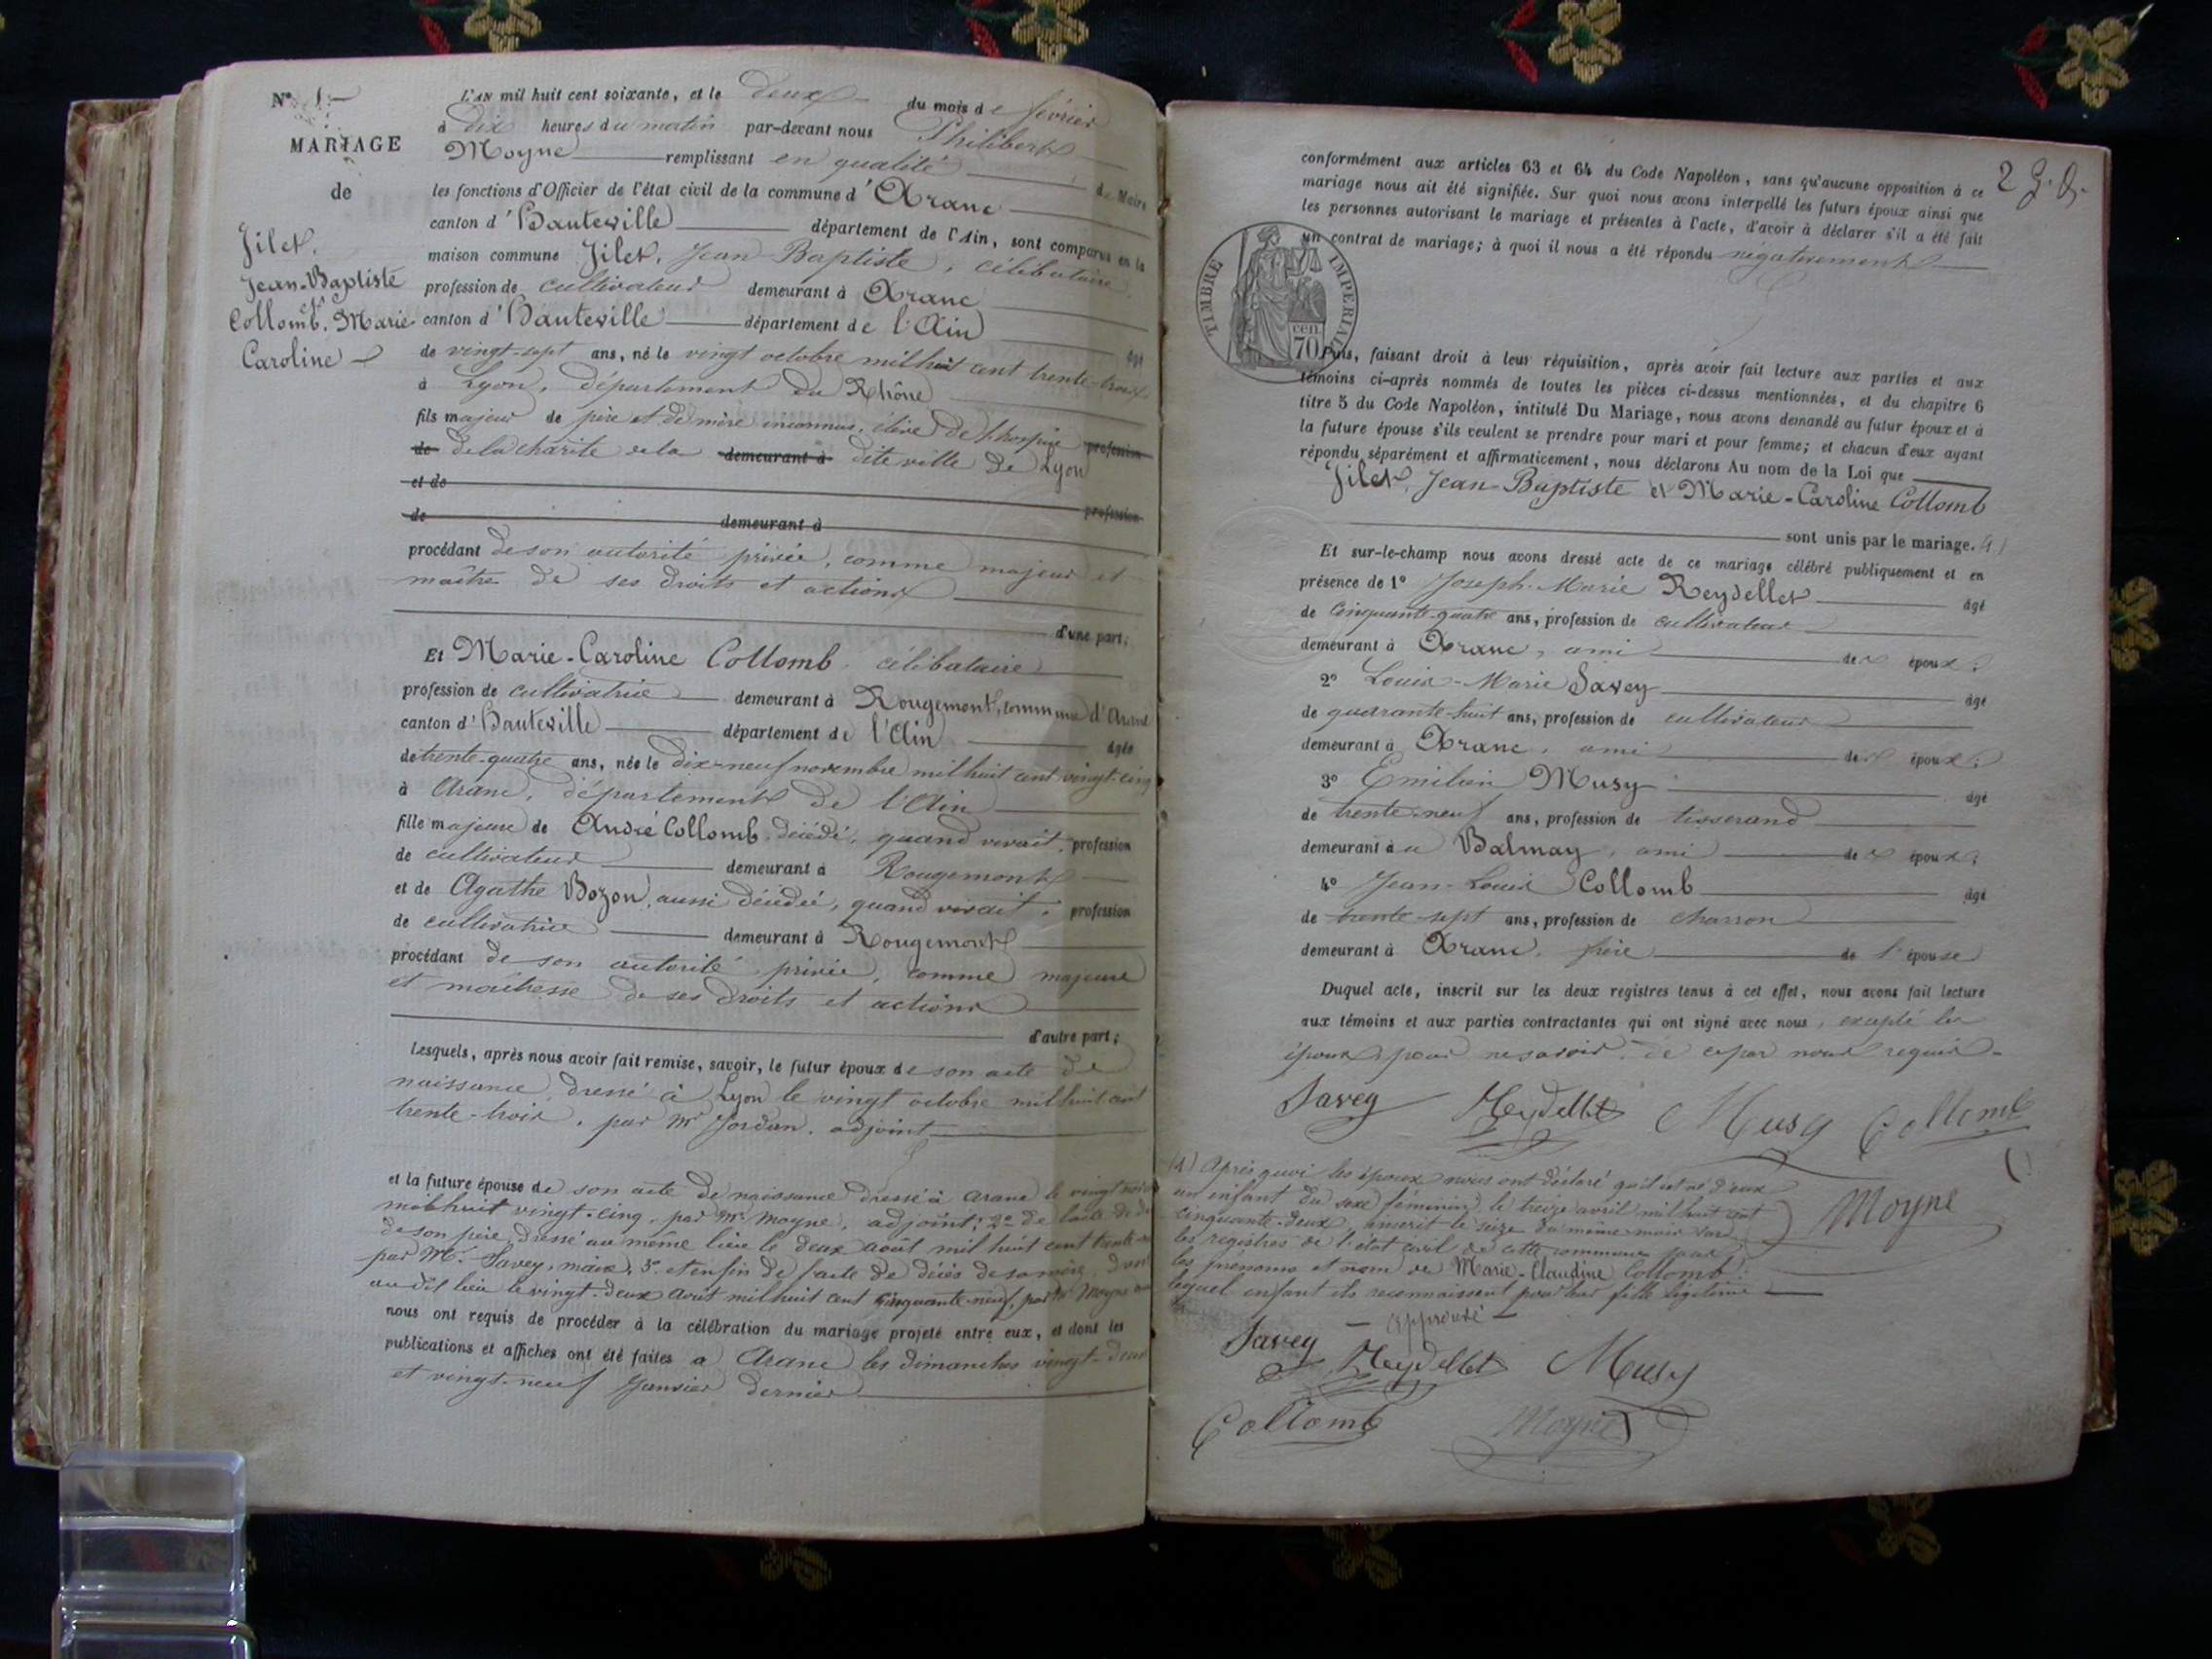 N° 1
MARIAGE
de
Jilet,
Jean-Baptiste
et
Collomb, Marie
Caroline
L'AN mil huit cent soixante, et le deux du mois de février
à dix heures du matin par-devant nous Philibert
Moyne remplissant en qualité de Maire
les fonctions d'Officier de l'état civil de la commune d'Aranc
canton d'Hauteville département de l'Ain, sont comparus en la
maison commune Jilet, Jean-Baptiste, célibataire,
profession de cultivateur demeurant à Aranc
canton d'Hauteville département de l'Ain âgé
de vingt-sept ans, né le vingt octobre mil huit cent trente-trois
à Lyon, département du Rhône
fils majeur de père et de mère inconnus, élève de l'hospice profession
de de la charité de la demeurant à dite ville de Lyon
et de
de demeurant à profession
procédant de son autorité privée, comme majeur et
maître de ses droits et actions
d'une part;
Et Marie-Caroline Collomb, célibataire
profession de cultivatrice demeurant à Rougemont, commune d'Aranc
canton d'Hauteville département de l'Ain âgée
de trente-quatre ans, née le dix-neuf novembre mil huit cent vingt-cinq
à Aranc, département de l'Ain
fille majeure de André Collomb, décédé, quand vivait, profession
de cultivateur demeurant à Rougemont
et de Agathe Bozon, aussi décédée, quand vivait, profession
de cultivatrice demeurant à Rougemont
procédant de son autorité privée, comme majeure
et maîtresse de ses droits et actions
d'autre part;
Lesquels, après nous avoir fait remise, savoir, le futur époux de son acte de
naissance, dressé à Lyon le vingt octobre mil huit cent
trente-trois, par Mr Jordan, adjoint
et la future épouse de son acte de naissance dressé à Aranc le vingt
mil huit vingt-cinq, par Mr Moyne, adjoint; 2° de l'acte de
de son père, dressé au même lieu le deux août mil huit cent trente
par Mr Savey, maire; 3° et enfin de l'acte de décès de sa mère,
au dit lieu le vingt-deux août mil huit cent cinquante-neuf, par Mr Moyne
nous ont requis de procéder à la célébration du mariage projeté entre eux, et dont les
publications et affiches ont été faites à Aranc les dimanches vingt-deux
et vingt-neuf janvier dernier
2
conformément aux articles 63 et 64 du Code Napoléon, sans qu'aucune opposition à ce
mariage nous ait été signifiée. Sur quoi nous avons interpellé les futurs époux ainsi que
les personnes autorisant le mariage et présentes à l'acte, d'avoir à déclarer s'il a été fait
un contrat de mariage; à quoi il nous a été répondu négativement
TIMBRE IMPERIAL
70 cen
Puis, faisant droit à leur réquisition, après avoir fait lecture aux parties et aux
témoins ci-après nommés de toutes les pièces ci-dessus mentionnées, et du chapitre 6
titre 5 du Code Napoléon, intitulé Du Mariage, nous avons demandé au futur époux et à
la future épouse s'ils veulent se prendre pour mari et pour femme; et chacun d'eux ayant
répondu séparément et affirmativement, nous déclarons Au nom de la Loi que
Jilet, Jean-Baptiste et Marie-Caroline Collomb
sont unis par le mariage. (1)
Et sur-le-champ nous avons dressé acte de ce mariage célébré publiquement et en
présence de 1° Joseph-Marie Reydellet âgé
de cinquante-quatre ans, profession de cultivateur
demeurant à Aranc, ami des époux;
2° Louis-Marie Savey âgé
de quarante-huit ans, profession de cultivateur
demeurant à Aranc, ami des époux;
3° Emilien Musy âgé
de trente-neuf ans, profession de tisserand
demeurant à Balmay, ami des époux;
4° Jean-Louis Collomb âgé
de trente-sept ans, profession de charron
demeurant à Aranc, frère de l'épouse
Duquel acte, inscrit sur les deux registres tenus à cet effet, nous avons fait lecture
aux témoins et aux parties contractantes qui ont signé avec nous, excepté les
époux, pour ne savoir, de ce par nous requis.
Savey Reydellet Musy Collomb
(1) Après quoi les époux nous ont déclaré qu'il est né d'eux
un enfant du sexe féminin, le treize avril mil huit cent
cinquante-deux, inscrit le seize du même mois sur
les registres de l'état civil de cette commune sous
les prénoms et nom de Marie-Claudine Collomb;
lequel enfant ils reconnaissent pour leur fille légitime
Moyne
approuvé
Savey Reydellet Musy
Collomb Moyne